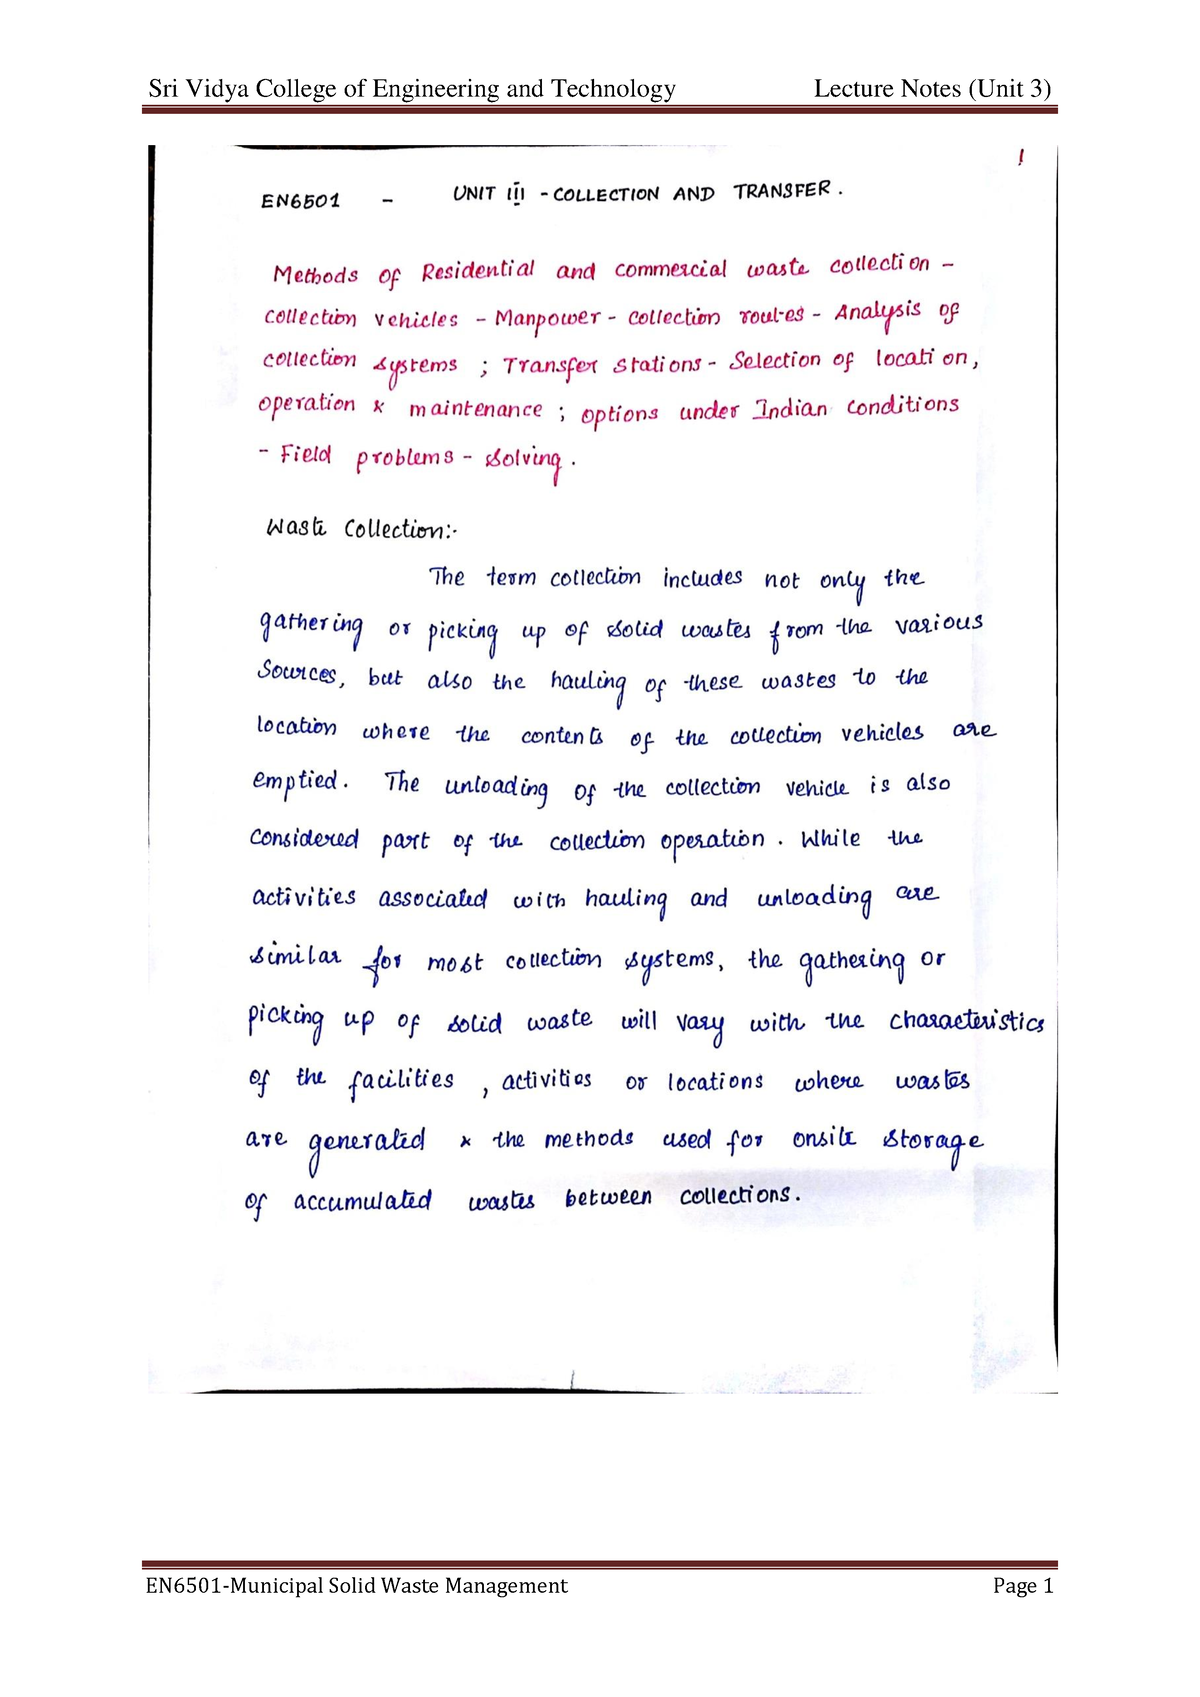 Sri Vidya College of Engineering and Technology Lecture Notes (Unit 3)
1
EN6501 - UNIT III - COLLECTION AND TRANSFER.
Methods of Residential and commercial waste collection -
collection vehicles - Manpower - collection routes - Analysis of
collection systems ; Transfer stations - Selection of location,
operation & maintenance ; options under Indian conditions
- Field problems - solving.
Waste Collection:-
The term collection includes not only the
gathering or picking up of solid wastes from the various
Sources, but also the hauling of these wastes to the
location where the contents of the collection vehicles are
emptied. The unloading of the collection vehicle is also
considered part of the collection operation. While the
activities associated with hauling and unloading are
similar for most collection systems, the gathering or
picking up of solid waste will vary with the characteristics
of the facilities, activities or locations where wastes
are generated & the methods used for onsite storage
of accumulated wastes between collections.
EN6501-Municipal Solid Waste Management Page 1